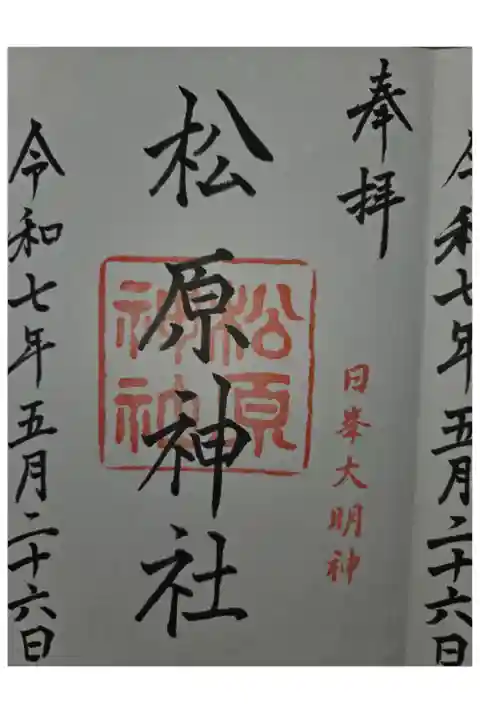 令和七年五月二十六日
奉拝
日峯大明神
松原神社
松原
神社
令和七年五月二十六日